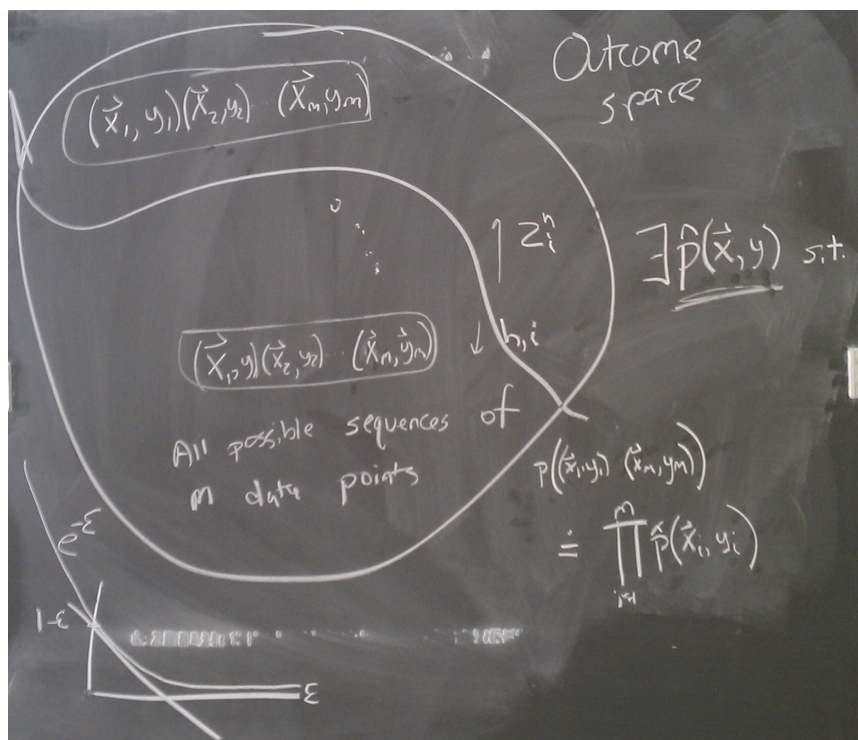 Outcome
space
(x⃗₁, y₁)(x⃗₂, y₂) ·· (x⃗ₘ, yₘ)
↑ Zᵢʰ
∃ p̂(x⃗, y) s.t.
↓ h,i
(x⃗₁, y₁)(x⃗₂, y₂) ·· (x⃗ₘ, y⃗ₘ)
All possible sequences of
m data points
p((x⃗₁, y₁) (x⃗ₘ, yₘ))
= ∏ᵢ₌₁ᵐ p̂(x⃗ᵢ, yᵢ)
e^-ε
1-ε
ε